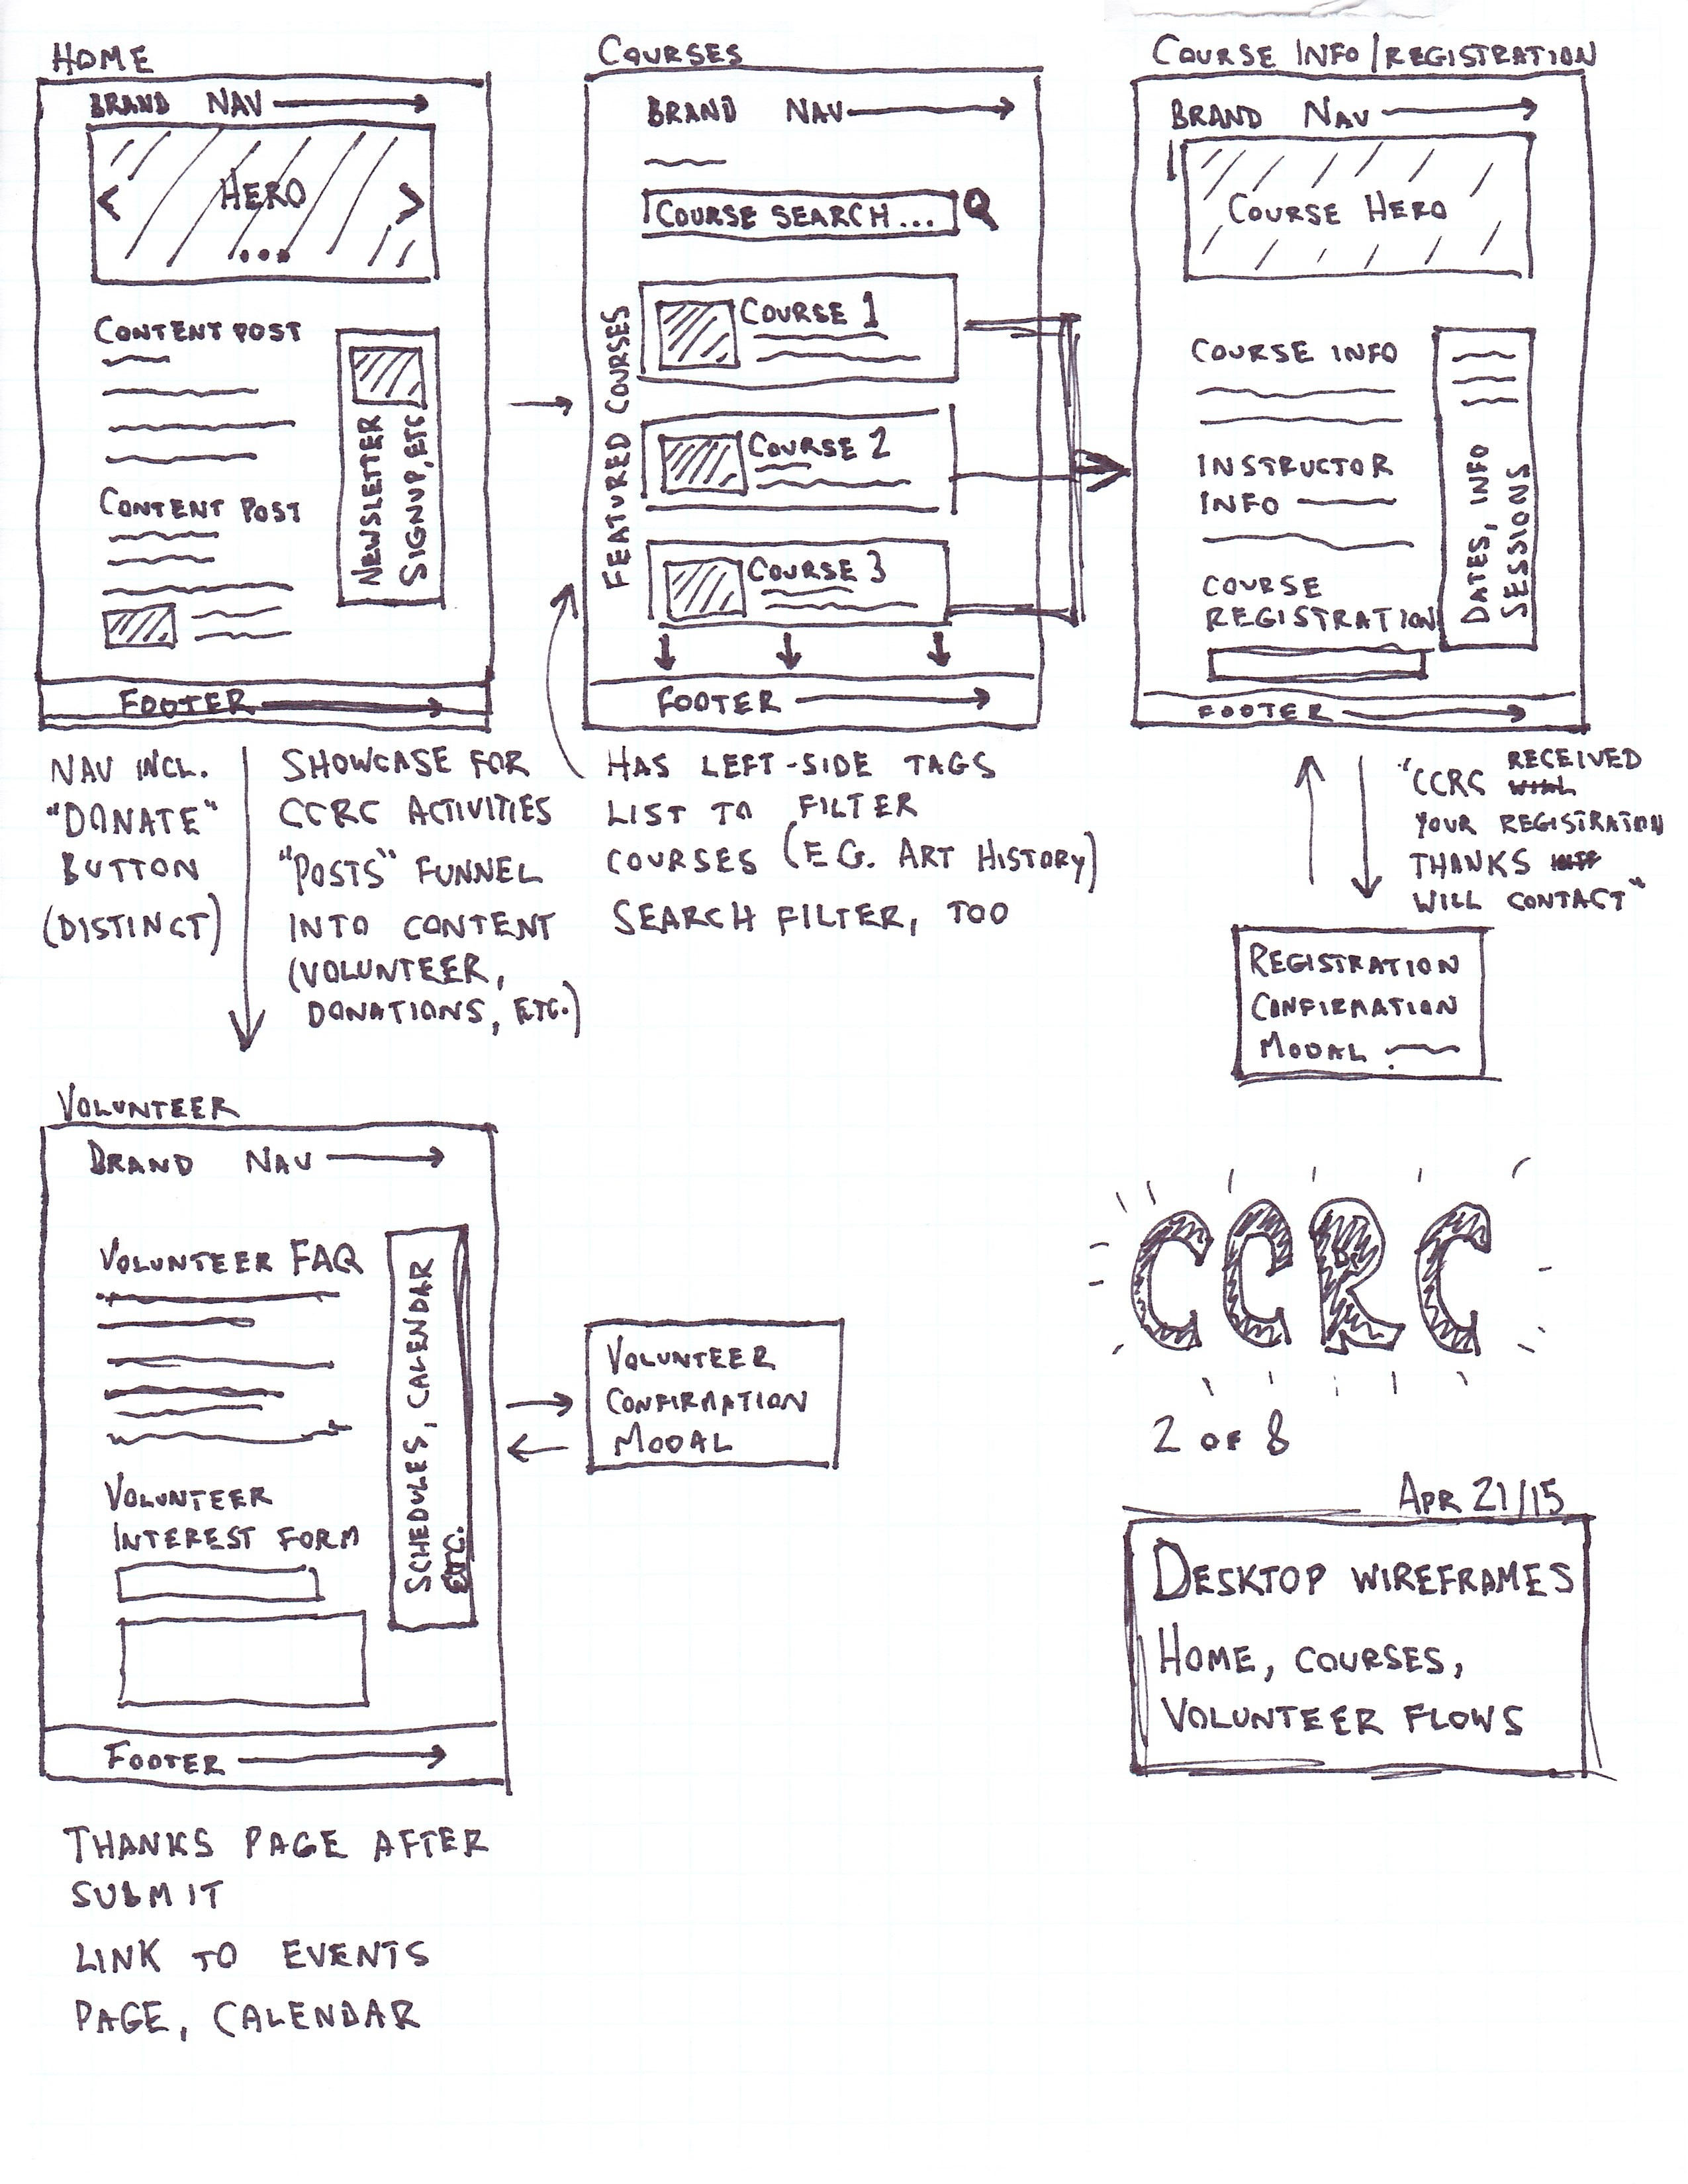 HOME
BRAND NAV
HERO
...
CONTENT POST
CONTENT POST
NEWSLETTER
SIGNUP, ETC
FOOTER
NAV INCL.
"DONATE"
BUTTON
(DISTINCT)
SHOWCASE FOR
CCRC ACTIVITIES
"POSTS" FUNNEL
INTO CONTENT
(VOLUNTEER,
DONATIONS, ETC.)
COURSES
BRAND NAV
COURSE SEARCH...
FEATURED COURSES
COURSE 1
COURSE 2
COURSE 3
FOOTER
HAS LEFT-SIDE TAGS
LIST TO FILTER
COURSES (E.G. ART HISTORY)
SEARCH FILTER, TOO
COURSE INFO/REGISTRATION
BRAND NAV
COURSE HERO
COURSE INFO
INSTRUCTOR
INFO
COURSE
REGISTRATION
DATES, INFO
SESSIONS
FOOTER
"CCRC RECEIVED
YOUR REGISTRATION
THANKS
WILL CONTACT"
REGISTRATION
CONFIRMATION
MODAL
VOLUNTEER
BRAND NAV
VOLUNTEER FAQ
VOLUNTEER
INTEREST FORM
SCHEDULES, CALENDAR
ETC.
FOOTER
THANKS PAGE AFTER
SUBMIT
LINK TO EVENTS
PAGE, CALENDAR
VOLUNTEER
CONFIRMATION
MODAL
CCRC
2 OF 8
APR 21/15
DESKTOP WIREFRAMES
HOME, COURSES,
VOLUNTEER FLOWS